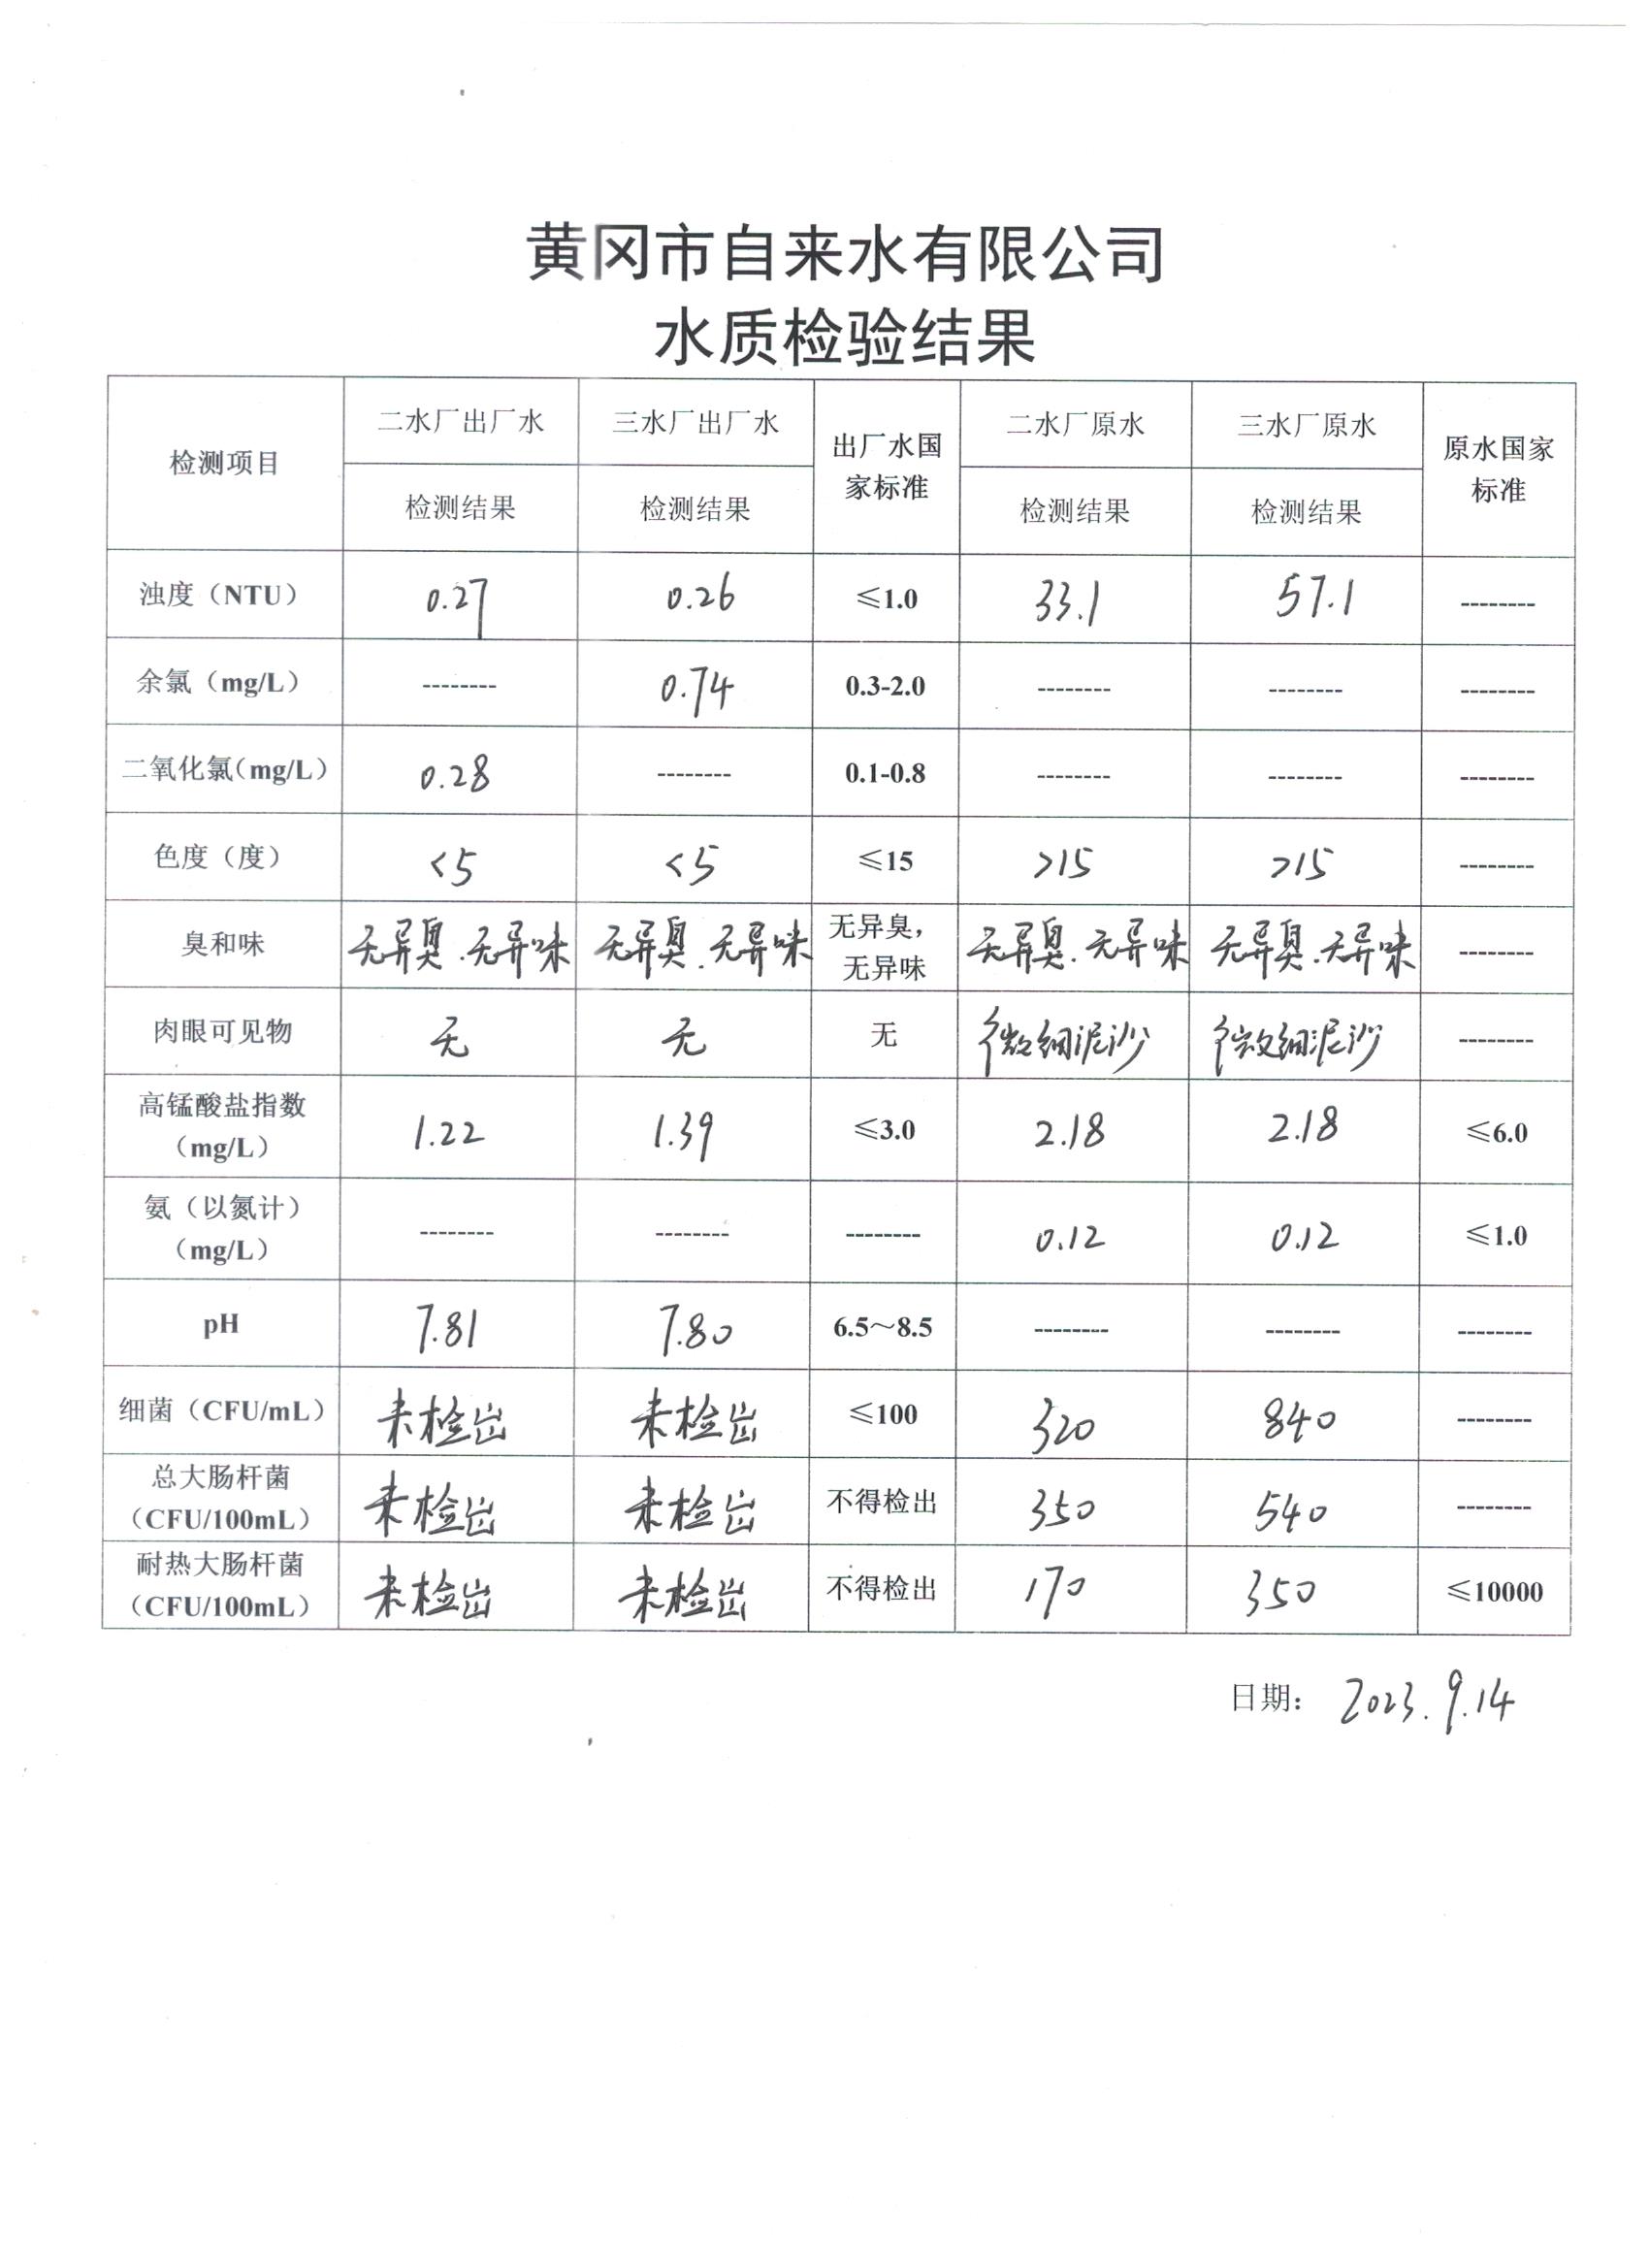 黄冈市自来水有限公司
水质检验结果
检测项目 二水厂出厂水 三水厂出厂水 出厂水国家标准 二水厂原水 三水厂原水 原水国家标准
检测结果 检测结果 检测结果 检测结果
浊度（NTU） 0.27 0.26 ≤1.0 33.1 57.1 --------
余氯（mg/L） -------- 0.74 0.3-2.0 -------- -------- --------
二氧化氯（mg/L） 0.28 -------- 0.1-0.8 -------- -------- --------
色度（度） <5 <5 ≤15 >15 >15 --------
臭和味 无异臭.无异味 无异臭.无异味 无异臭，无异味 无异臭.无异味 无异臭.无异味 --------
肉眼可见物 无 无 无 微细泥沙 微细泥沙 --------
高锰酸盐指数（mg/L） 1.22 1.39 ≤3.0 2.18 2.18 ≤6.0
氨（以氮计）（mg/L） -------- -------- -------- 0.12 0.12 ≤1.0
pH 7.81 7.80 6.5～8.5 -------- -------- --------
细菌（CFU/mL） 未检出 未检出 ≤100 320 840 --------
总大肠杆菌（CFU/100mL） 未检出 未检出 不得检出 350 540 --------
耐热大肠杆菌（CFU/100mL） 未检出 未检出 不得检出 170 350 ≤10000
日期： 2023.9.14